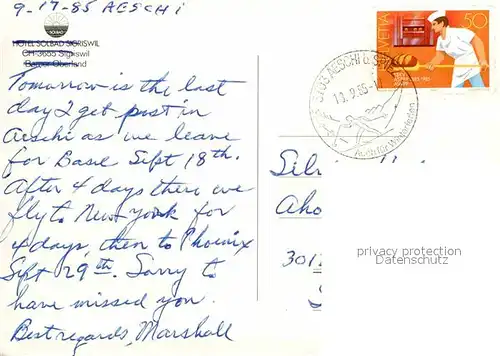 9-17-85 AESCHI
SOLBAD
HOTEL SOLBAD SIGRISWIL
CH-3655 Sigriswil
Berner Oberland
Tomorrow is the last
day I get post in
Aeschi as we leave
for Basel Sept 18th.
After 4 days there we
fly to New York for
4 days, then to Phoenix
Sept 29th. Sorry to
have missed you.
Best regards, Marshall
HELVETIA 50
3703 AESCHI b. SPIEZ
Auch für Wanderferien
Silv
Aho
301
privacy protection
Datenschutz